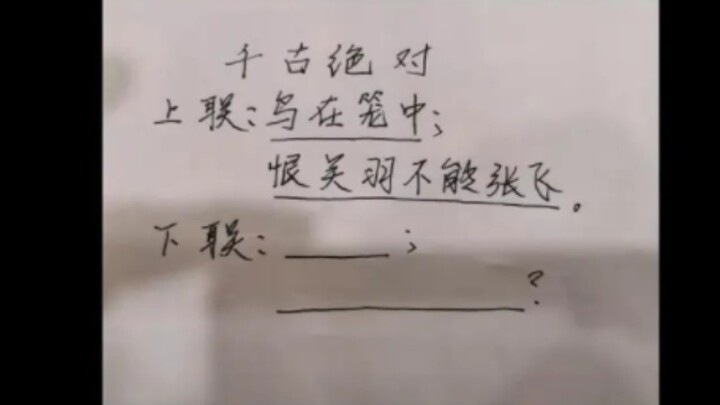 千古绝对
上联:鸟在笼中;
恨关羽不能张飞。
下联:____;
________?